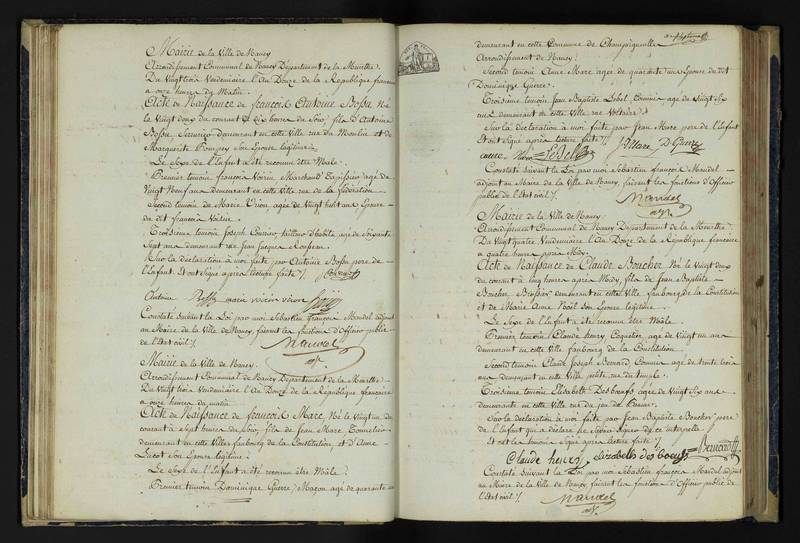 Mairie de la Ville de Nancy
Arrondissement Communal de Nancy Département de la Meurthe.
Du Vingt trois Vendemiaire l'An Douze de la République francaise
a onze heures du Matin.
Acte de Naissance de françois Antoine Bosse Né
le Vingt deux du courant à dix heures du Soir, fils d'Antoine
Bosse, Serrurier demeurant en cette Ville rue du Moulin et de
Marguerite Pompey son Epouse légitime.
Le Sexe de l'Enfant a été reconnu être Male.
Premier temoin françois Voirin Marchand Tapissier agé de
Vingt Neuf ans demeurant en cette Ville rue de la Fédération.
Second temoin de Marie agée de Vingt huit ans Epouse
du dit françois Voirin.
Troisieme temoin Joseph tailleur d'habits, agé de Soixante
Sept ans demeurant rue Jean Jacques Rousseau.
Sur la déclaration à moi faite par Antoine Bosse pere de
l'Enfant. Et ont Signé après lecture faite./.
Antoine Bosse marie voirin
Constaté suivant la Loi par moi Sébastien françois Mandel adjoint
au Maire de la Ville de Nancy, faisant les fonctions d'Officier public
de l'Etat civil./.
Mandel
adjt.
Mairie de la Ville de Nancy.
Arrondissement Communal de Nancy Département de la Meurthe.
Du Vingt trois Vendemiaire l'An Douze de la République francaise
a onze heures du matin
Acte de Naissance de francois Marc, Né le Vingt un du
courant à Sept heures du Soir, fils de Jean Marc Tonnelier
demeurant en cette Ville faubourg de la Constitution, et d'Anne
son Epouse légitime.
Le Sexe de l'Enfant a été reconnu être Mâle.
Premier temoin Dominique Guerre, Maçon agé de quarante
demeurant en cette Commune de Champigneulle
Arrondissement de Nancy.
Second temoin Anne Marc agée de quarante un Epouse du dit
Dominique Guerre.
Troisieme temoin Jean Baptiste Lebel, Commis agé de Vingt Six
ans demeurant de cette Ville rue Voltaire.
Sur la déclaration à moi faite par Jean Marc pere de l'Enfant
Et ont Signé après lecture faite./.
anne Marc Lebel J. Marc D. Guerre
Constaté Suivant la Loi par moi Sébastien françois Mandel
adjoint au Maire de la Ville de Nancy, faisant les fonctions d'Officier
public de l'Etat civil./.
Mandel
adjt.
Mairie de la Ville de Nancy.
Arrondissement Communal de Nancy Département de la Meurthe.
Du Vingt quatre Vendemiaire l'An Douze de la République francaise
a quatre heures après Midy.
Acte de Naissance de Claude Boucher Né le Vingt deux
du courant à cinq heures après Midy, fils de Jean Baptiste
Boucher, Brossier demeurant en cette Ville faubourg de la Constitution
et de Marie Anne Noël Son Epouse légitime.
Le Sexe de l'Enfant a été reconnu être Mâle.
Premier temoin Claude henry, Coquetier, agé de Vingt un ans
demeurant en cette Ville faubourg de la Constitution.
Second temoin Claude Joseph Bernard Commis agé de trente trois
ans demeurant en cette Ville petite rue du temple.
Troisieme temoin Elisabeth Desboeufs agée de Vingt Six ans
demeurante en cette Ville rue du jeu de Paume.
Sur la déclaration à moi faite par Jean Baptiste Boucher pere
de l'Enfant qui a déclaré ne Savoir Signer de ce interpellé.
Et ont les temoins Signé après lecture faite./.
Claude henry Elisabeth desboeufs Bernard
Constaté Suivant la Loi par moi Sébastien françois Mandel adjoint
au Maire de la Ville de Nancy faisant les fonctions d'Officier public de
l'Etat civil./.
Mandel
adjt.